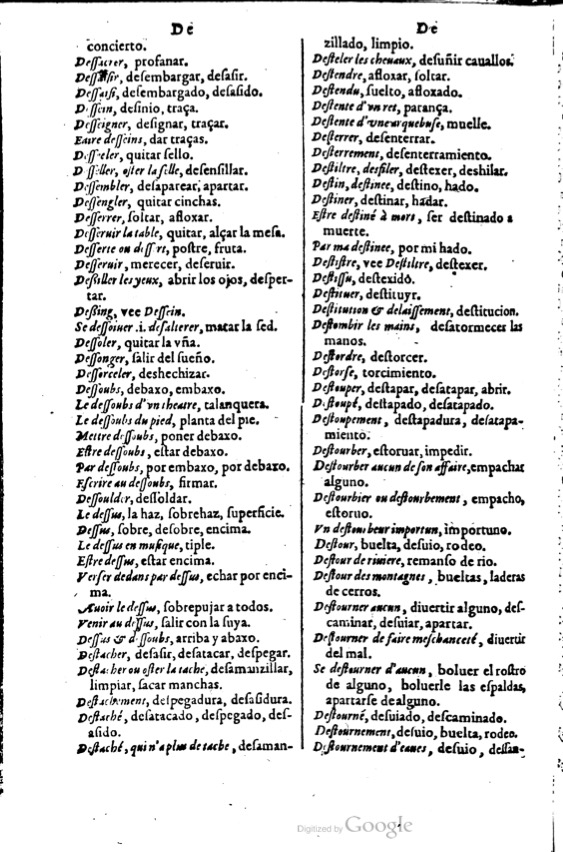 De
concierto.
Deſſacrer, profanar.
Deſſaiſir, deſembargar, deſaſir.
Deſſaiſi, deſembargado, deſaſido.
Deſſein, deſinio, traça.
Deſſeigner, deſignar, traçar.
Faire deſſeins, dar traças.
Deſſeeler, quitar ſello.
Deſſeller, oſter la ſelle, deſenſillar.
Deſſembler, deſaparear, apartar.
Deſſengler, quitar cinchas.
Deſſerrer, ſoltar, afloxar.
Deſſeruir la table, quitar, alçar la meſa.
Deſſerte ou deſſert, poſtre, fruta.
Deſſeruir, merecer, deſeruir.
Deſſiller les yeux, abrir los ojos, deſper-
tar.
Deſſing, vee Deſſein.
Se deſſoiuer .i. deſalterer, matar la ſed.
Deſſoler, quitar la vña.
Deſſonger, ſalir del ſueño.
Deſſorceler, deshechizar.
Deſſoubs, debaxo, embaxo.
Le deſſoubs d'vn theatre, talanquera.
Le deſſoubs du pied, planta del pie.
Mettre deſſoubs, poner debaxo.
Eſtre deſſoubs, eſtar debaxo.
Par deſſoubs, por embaxo, por debaxo.
Eſcrire au deſſoubs, firmar.
Deſſoulder, deſſoldar.
Le deſſus, la haz, ſobrehaz, ſuperficie.
Deſſus, ſobre, deſobre, encima.
Le deſſus en muſique, tiple.
Eſtre deſſus, eſtar encima.
Verſer dedans par deſſus, echar por enci-
ma.
Auoir le deſſus, ſobrepujar a todos.
Venir au deſſus, ſalir con la ſuya.
Deſſus & deſſoubs, arriba y abaxo.
Deſtacher, deſaſir, deſatacar, deſpegar.
Deſtacher ou oſter la tache, deſamanzillar,
limpiar, ſacar manchas.
Deſtachement, deſpegadura, deſaſidura.
Deſtaché, deſatacado, deſpegado, deſ-
aſido.
Deſtaché, qui n'a plus de tache, deſaman-
De
zillado, limpio.
Deſteler les cheuaux, deſuñir cauallos.
Deſtendre, afloxar, ſoltar.
Deſtendu, ſuelto, afloxado.
Deſtente d'vn ret, parança.
Deſtente d'vne arquebuſe, muelle.
Deſterrer, deſenterrar.
Deſterrement, deſenterramiento.
Deſtiltre, desfiler, deſtexer, deshilar.
Deſtin, deſtinee, deſtino, hado.
Deſtiner, deſtinar, hadar.
Eſtre deſtiné à mort, ſer deſtinado a
muerte.
Par ma deſtinee, por mi hado.
Deſtiſtre, vee Deſtiltre, deſtexer.
Deſtiſſu, deſtexido.
Deſtituer, deſtituyr.
Deſtitution & delaiſſement, deſtitucion.
Deſtombir les mains, deſatormeces las
manos.
Deſtordre, deſtorcer.
Deſtorſe, torcimiento.
Deſtouper, deſtapar, deſatapar, abrir.
Deſtoupé, deſtapado, deſatapado.
Deſtoupement, deſtapadura, deſatapa-
miento.
Deſtourber, eſtoruar, impedir.
Deſtourber aucun de ſon affaire, empachar
alguno.
Deſtourbier ou deſtourbement, empacho,
eſtoruo.
Vn deſtourbeur importun, importuno.
Deſtour, buelta, deſuio, rodeo.
Deſtour de riuiere, remanſo de rio.
Deſtour des montagnes, bueltas, laderas
de cerros.
Deſtourner aucun, diuertir alguno, deſ-
caminar, deſuiar, apartar.
Deſtourner de faire meſchanceté, diuertir
del mal.
Se deſtourner d'aucun, boluer el roſtro
de alguno, boluerle las eſpaldas,
apartarſe de alguno.
Deſtourné, deſuiado, deſcaminado.
Deſtournement, deſuio, buelta, rodeo.
Deſtournement d'eaues, deſuio, deſſan-
Digitized by Google